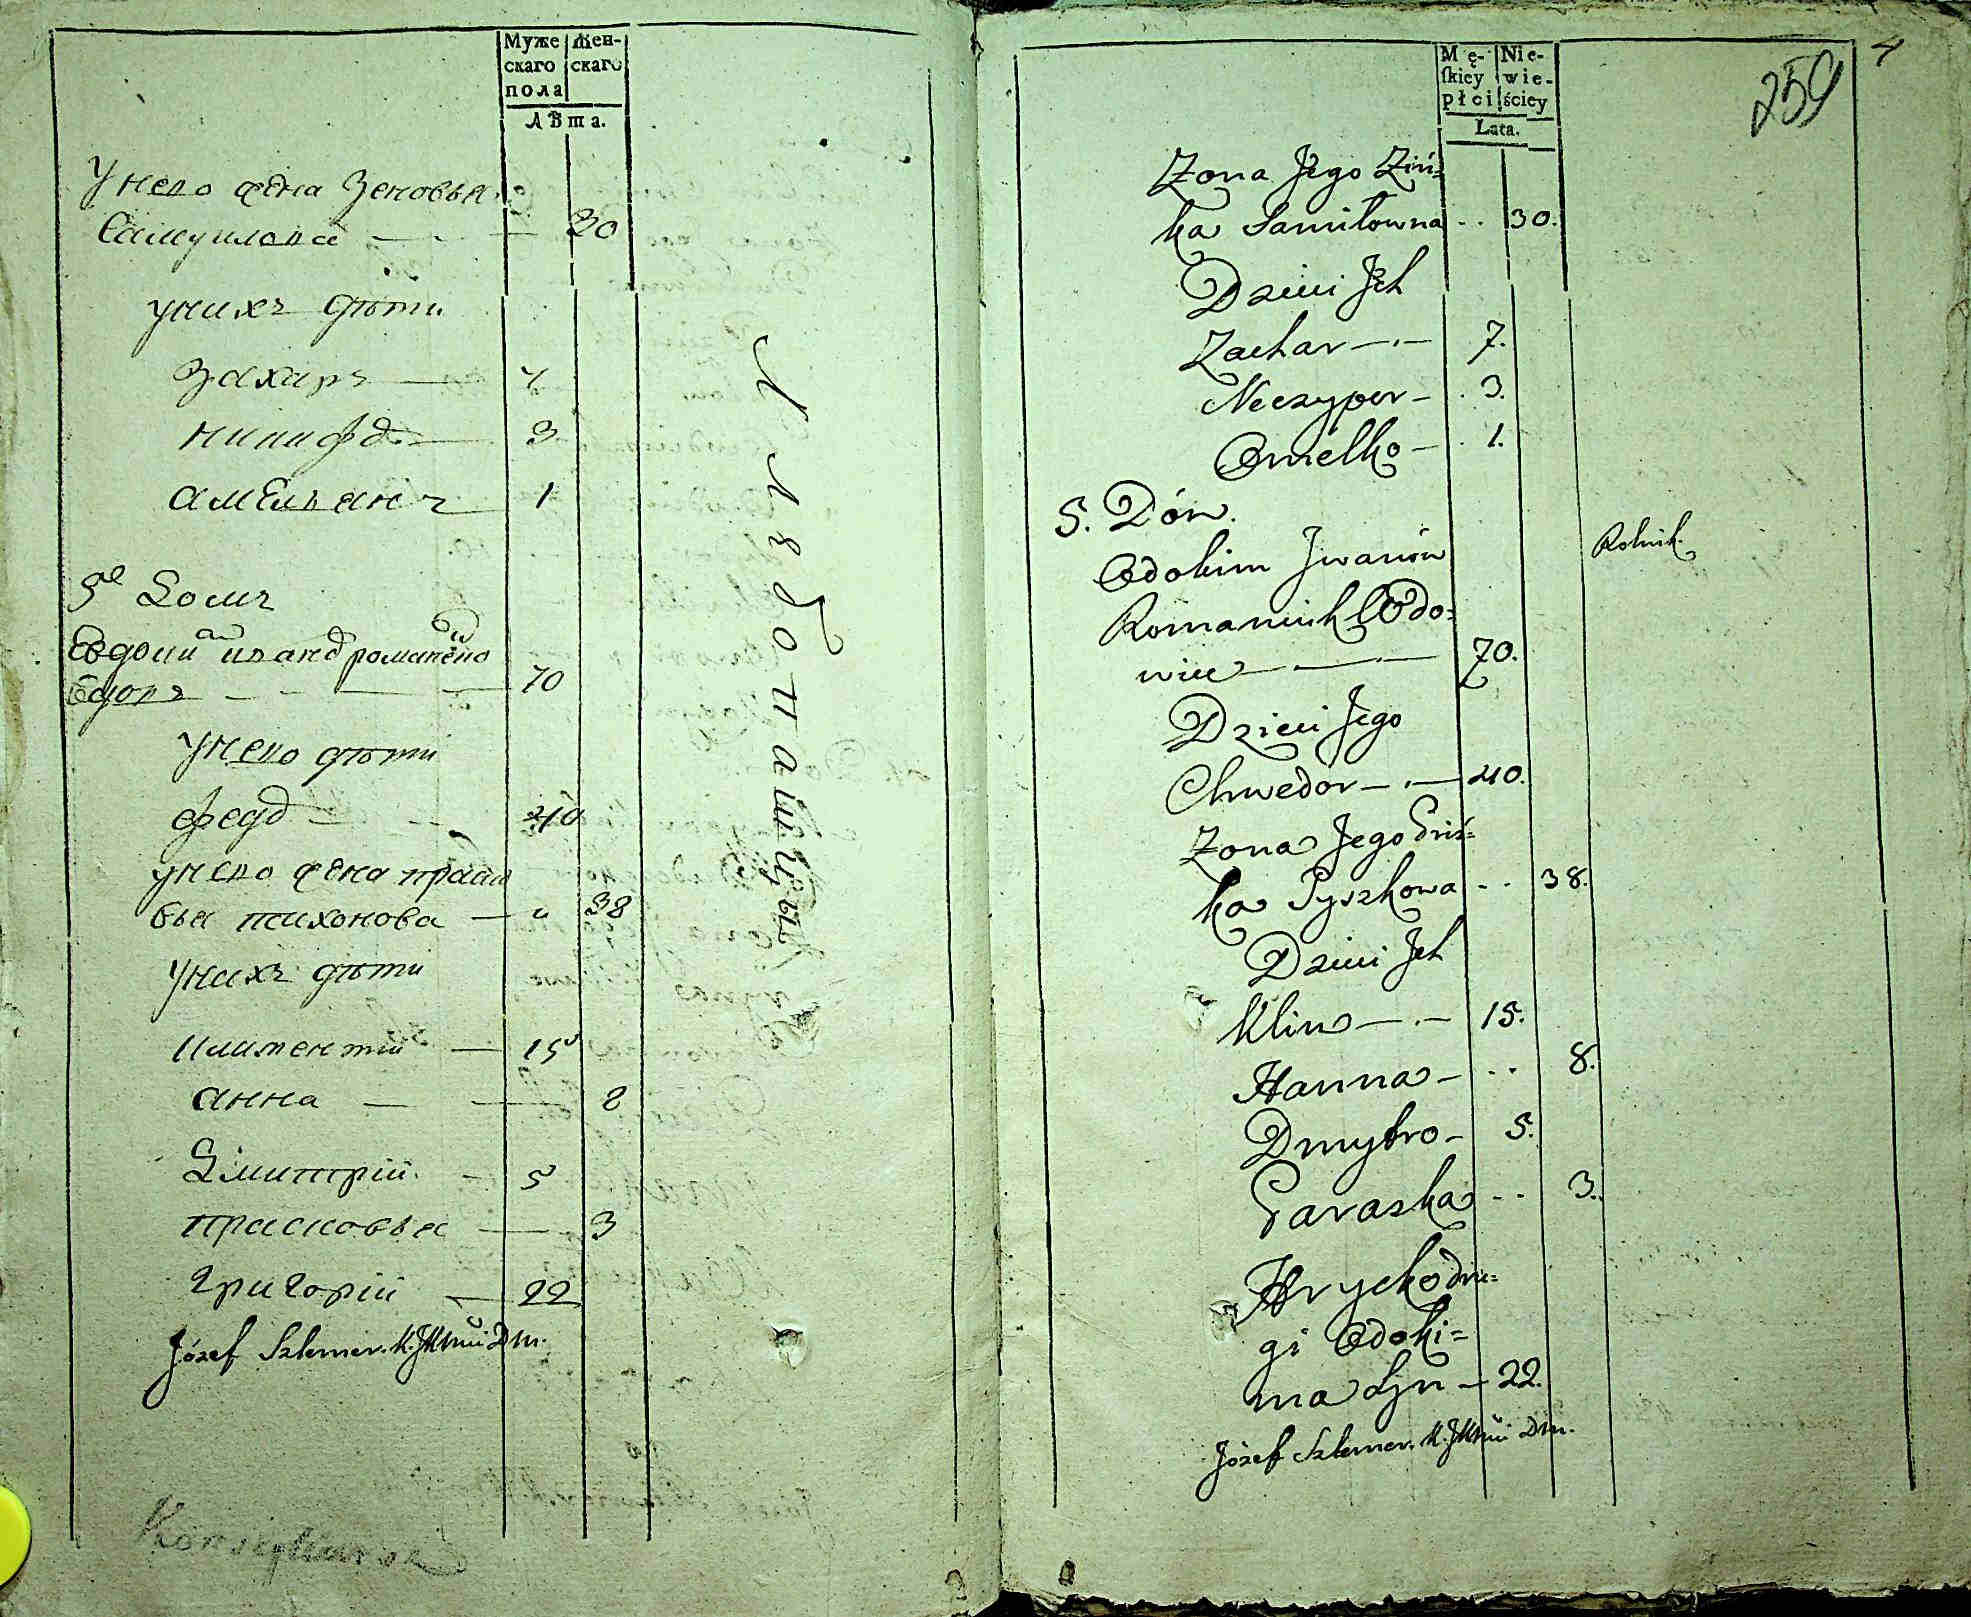 Муже Жен-
скаго скаго
пола
Лѣта.
Унего жена Зеновья
Самуилова — 30
унихъ дѣти
Захаръ — 7
Никифоръ — 3
Амельянъ — 1
5й Домъ
Евдокимъ Ивановъ Романюкъ
вдовъ — 70
Унего дѣти
Федоръ — 40
унего жена праско
вья тихонова — " 38
Унихъ дѣти
Климентий — 15
Анна — 8
Дмитрій — 5
прасковья — 3
Григорій — 22
Józef Szlemer. K.
Хлебопашцы
4
259
Mę- Nie-
skiey wie-
płci ściey
Lata.
Zona Jego Ziń=
ka Samiłowna .. 30.
Dzieci Jch
Zachar — 7.
Neczypor — 3.
Omelko — 1.
5. Dóm.
Odokim Jwanów
Romaniuk Wdo=
wiec — 70.
Rolnik.
Dzieci Jego
Chwedor — 40.
Zona Jego Priś=
ka Tyszkowa .. 38.
Dzieci Jch
Klim — 15.
Hanna — .. 8.
Dmytro — 5.
Paraska .. 3.
Hryćko dru=
gi Odoki=
ma Syn — 22.
Józef Szlemer. K.